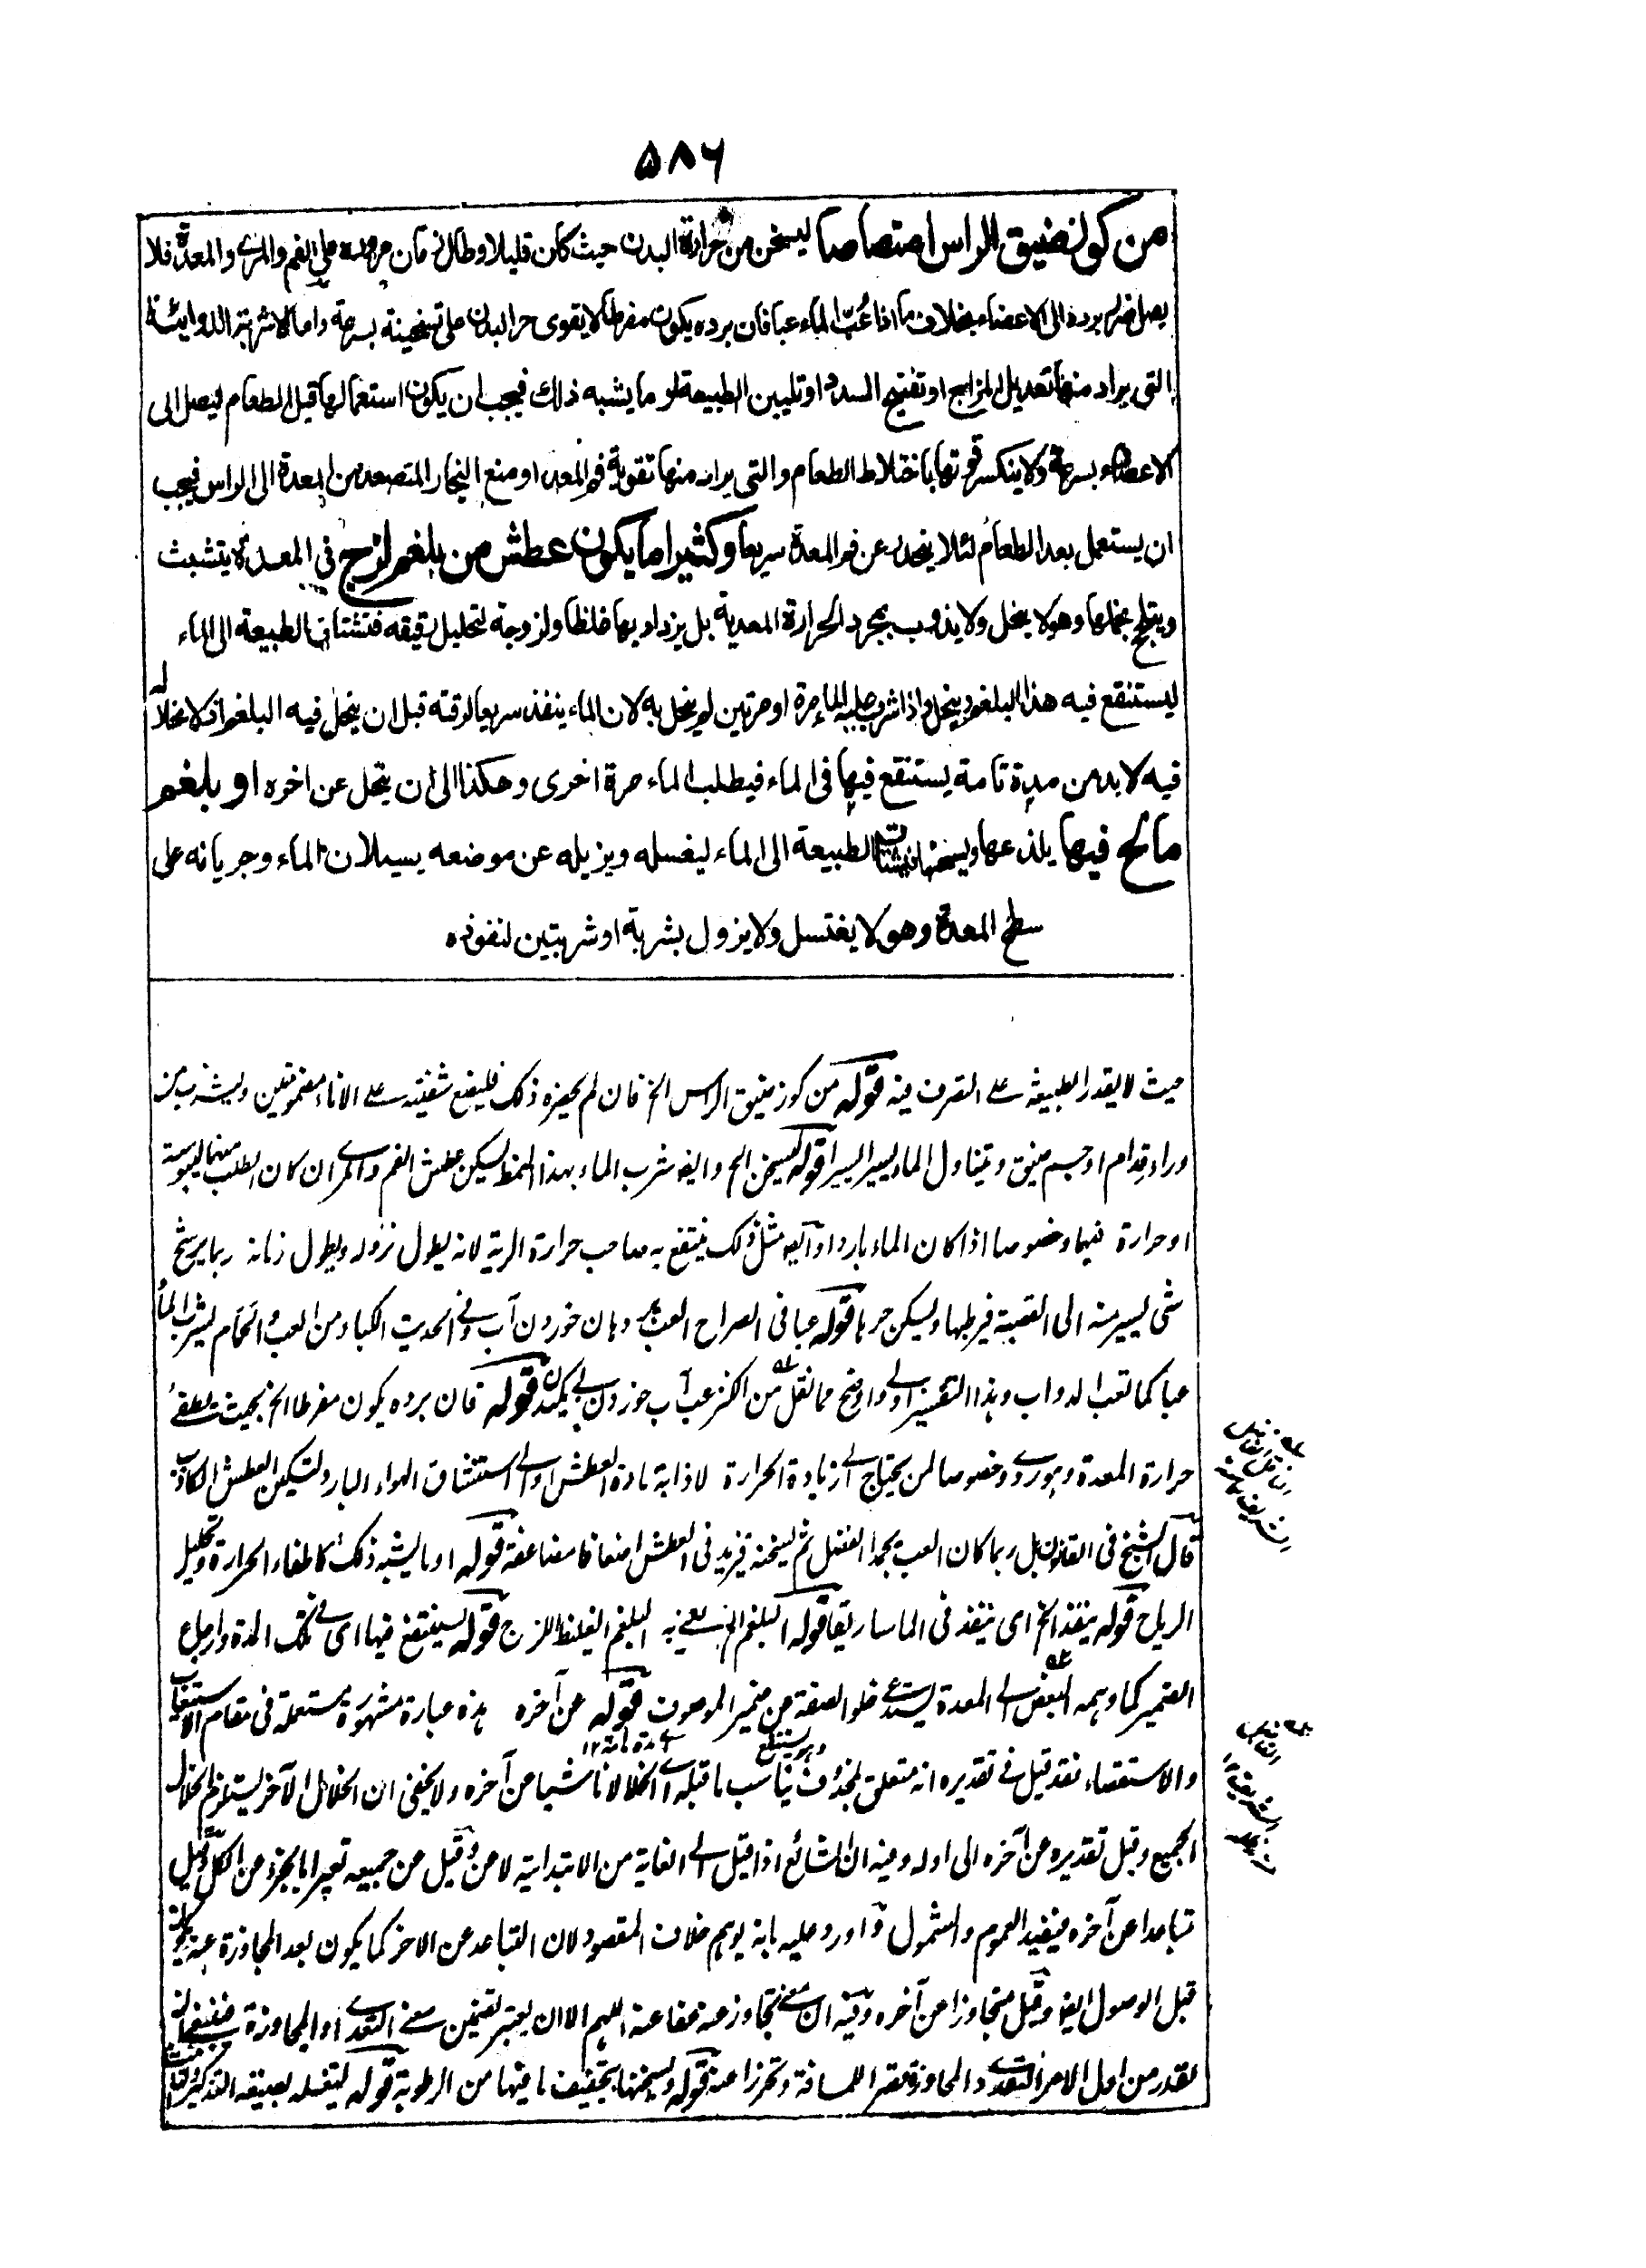 ۵۸۶
من كوز ضيق الراس امتصاصا ليسخن من حرارة البدن حيث كان قليلا وطال زمان مروره على الفم والمرى والمعدة فلا
يصل ضرر برده الى الاعضاء بخلاف ما اذا عُبّ الماء عبا فان برده يكون مفرطا لا يقوى حر البدن على تسخينه بسرعة واما الاشربة الدوائية
التى يراد منها تعديل المزاج او تفتيح السدد او تليين الطبيعة او ما يشبه ذلك فيجب ان يكون استعمالها قبل الطعام ليصل الى
الاعضاء بسرعة ولا ينكسر قوتها باختلاط الطعام والتى يراد منها تقوية فم المعدة او منع البخار المتصعد من المعدة الى الراس فيجب
ان يستعمل بعد الطعام لئلا ينحدر عن فم المعدة سريعا وكثيرا ما يكون عطش من بلغم لزج فى المعدة يتشبث
ويتلحج بخملها وهو لا ينحل ولا يذوب بمجرد الحرارة المعدية بل يزداد بها غلظا ولزوجة لتحليل رقيقه فتشتاق الطبيعة الى الماء
ليستنقع فيه هذا البلغم وينحل واذا شرب عليه الماء مرة او مرتين لم ينحل به لان الماء ينفذ سريعا لرقته قبل ان ينحل فيه البلغم اذ لانحلاله
فيه لابد من مدة تامة يستنقع فيها فى الماء فيطلب الماء مرة اخرى وهكذا الى ان ينحل عن اخره او بلغم
مالح فيها يلذعها ويسخنها فيشتاق الطبيعة الى الماء ليغسله ويزيله عن موضعه بسيلان الماء وجريانه على
سطح المعدة وهو لا يغتسل ولا يزول بشربة او شربتين لنفوذه
حيث لا يقدر الطبيعة على التصرف فيه قوله من كوز ضيق الراس الخ فان لم يحضره ذلك فليضع شفتيه على الاناء مضمومتين وليشرب من
وراء فدام او جسم ضيق ويتناول الماء يسيرا يسيرا قوله ليسخن الخ وايضا شرب الماء بهذا النمط يسكن عطش الفم والمرى ان كان الطلب منهما ليبوسة
او حرارة فيهما وخصوصا اذا كان الماء باردا وايضا مثل ذلك ينتفع به صاحب حرارة الرية لانه يطول نزوله ويطول زمانه ربما يرشح
شئ يسير منه الى القصبة فيرطبها ويسكن حرها قوله عبا فى الصراح العب بدهان خوردن آب وفى الحديث الكباد من العب والحمام يشرب الماء
عبا كما تعب الدواب وهذا التفسير اولى واوضح مما نقل من الكنز عب آب خوردن بى مكيدن قوله فان برده يكون مفرطا الخ بحيث يطفئ
حرارة المعدة ويورد وخصوصا لمن يحتاج الى زيادة الحرارة لاذابة مادة العطش واولى استنشاق الهواء البارد لتسكين العطش الكاذب
قال الشيخ فى القانون بل ربما كان العب يجمد الفضل ثم يسخنه فيزيد فى العطش اضعافا مضاعفة قوله او ما يشبه ذلك كاطفاء الحرارة وتحليل
الرياح قوله ينفذ الخ اى ينفذ فى الماساريقا قوله البلغم الخ يعنى به البلغم الغليظ اللزج قوله يستنقع فيها اى فى تلك المدة وارجاع
الضمير كما وهمه البعض الى المعدة يستدعى خلو الصفة من ضمير الموصوف قوله عن آخره هذه عبارة مشهورة مستعملة فى مقام الاستيعاب
والاستقصاء فقد قيل فى تقديره انه متعلق بمحذوف يناسب ما قبله اى انحلالا ناشيا من آخره ولا يخفى ان انحلال الآخر يستلزم انحلال
الجميع وقيل تقديره عن آخره الى اوله وفيه ان الشائع اذا قيل الى الغاية من الابتدائية لا عن وقيل من جميعه تعبيرا بالجزء عن الكل وقيل
تباعدا عن آخره فيفيد العموم والشمول واورد عليه بانه يوهم خلاف المقصود لان التباعد عن الاخر كما يكون بعد المجاوزة عنه يكون
قبل الوصول ايضا وقيل متجاوزا عن آخره وفيه ان معنى تجاوز عنه عفا عنه اللهم الا ان يعتبر تضمين معنى التعدى او المجاوزة
يقدر من اول الامر التعدى والمجاوزة تقصيرا للمسافة وتحرزا عنه قوله ويسخنها بتجفيف ما فيها من الرطوبة قوله ليغسله بصيغة التذكير